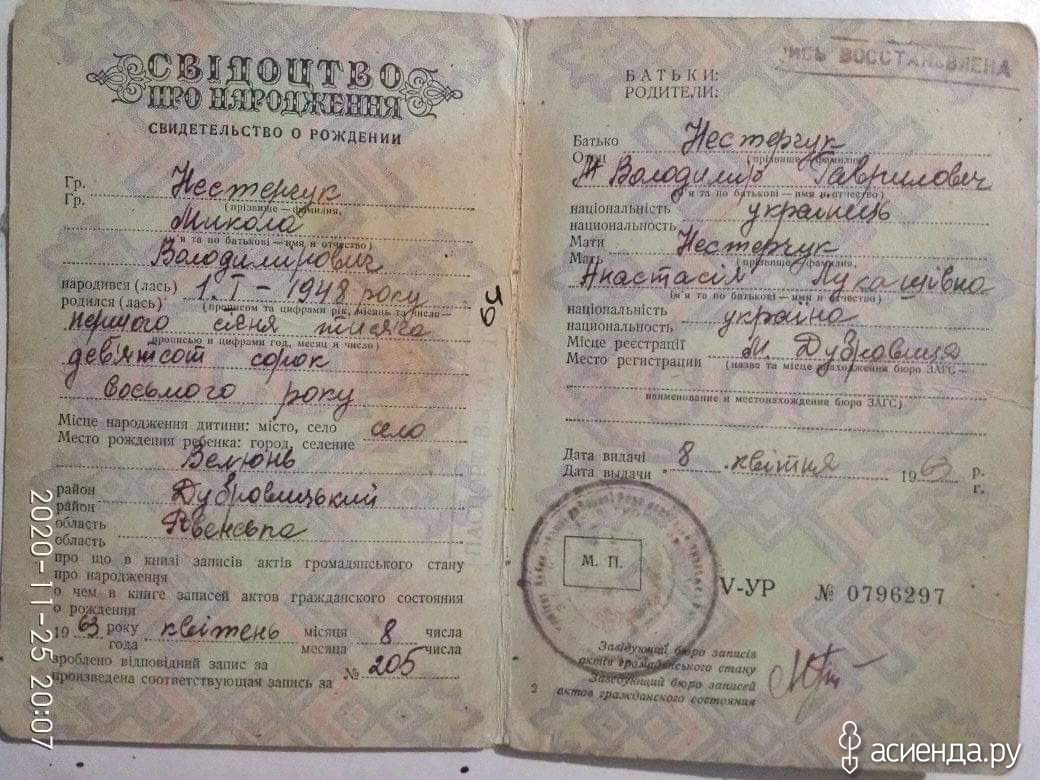 СВІДОЦТВО
ПРО НАРОДЖЕННЯ
СВИДЕТЕЛЬСТВО О РОЖДЕНИИ
Гр. Нестерчук
Гр. (прізвище—фамилия,
Микола
ім'я та по батькові—имя и отчество)
Володимирович
народився (лась) 1. І – 1948 року
родился (лась) (прописом та цифрами рік, місяць та число—
першого січня тисяча
прописью и цифрами год, месяц и число)
дев'ятсот сорок
восьмого року
Місце народження дитини: місто, село село
Место рождения ребенка: город, селение
Велюнь
район Дубровицький
район
область Рвенська
область
про що в книзі записів актів громадянського стану
про народження
о чем в книге записей актов гражданского состояния
о рождении
1963 року квітень місяця 8 числа
года месяца числа
зроблено відповідний запис за
произведена соответствующая запись за № 205
ВОССТАНОВЛЕНА
БАТЬКИ:
РОДИТЕЛИ:
Батько Нестерчук
Отец (прізвище—фамилия,
Володимир Гаврилович
ім'я та по батькові—имя и отчество)
національність українець
национальность
Мати Нестерчук
Мать (прізвище—фамилия,
Анастасія Лукашівна
ім'я та по батькові—имя и отчество)
національність україна
национальность
Місце реєстрації м. Дубровиця
Место регистрации (назва та місце знаходження бюро ЗАГС—
наименование и местонахождение бюро ЗАГС)
Дата видачі 8 квітня 1963 р.
Дата выдачи г.
М. П.
V-УР № 0796297
Завідуючий бюро записів
актів громадянського стану
Заведующий бюро записей
актов гражданского состояния
2
2020-11-25 20:07
асиенда.ру